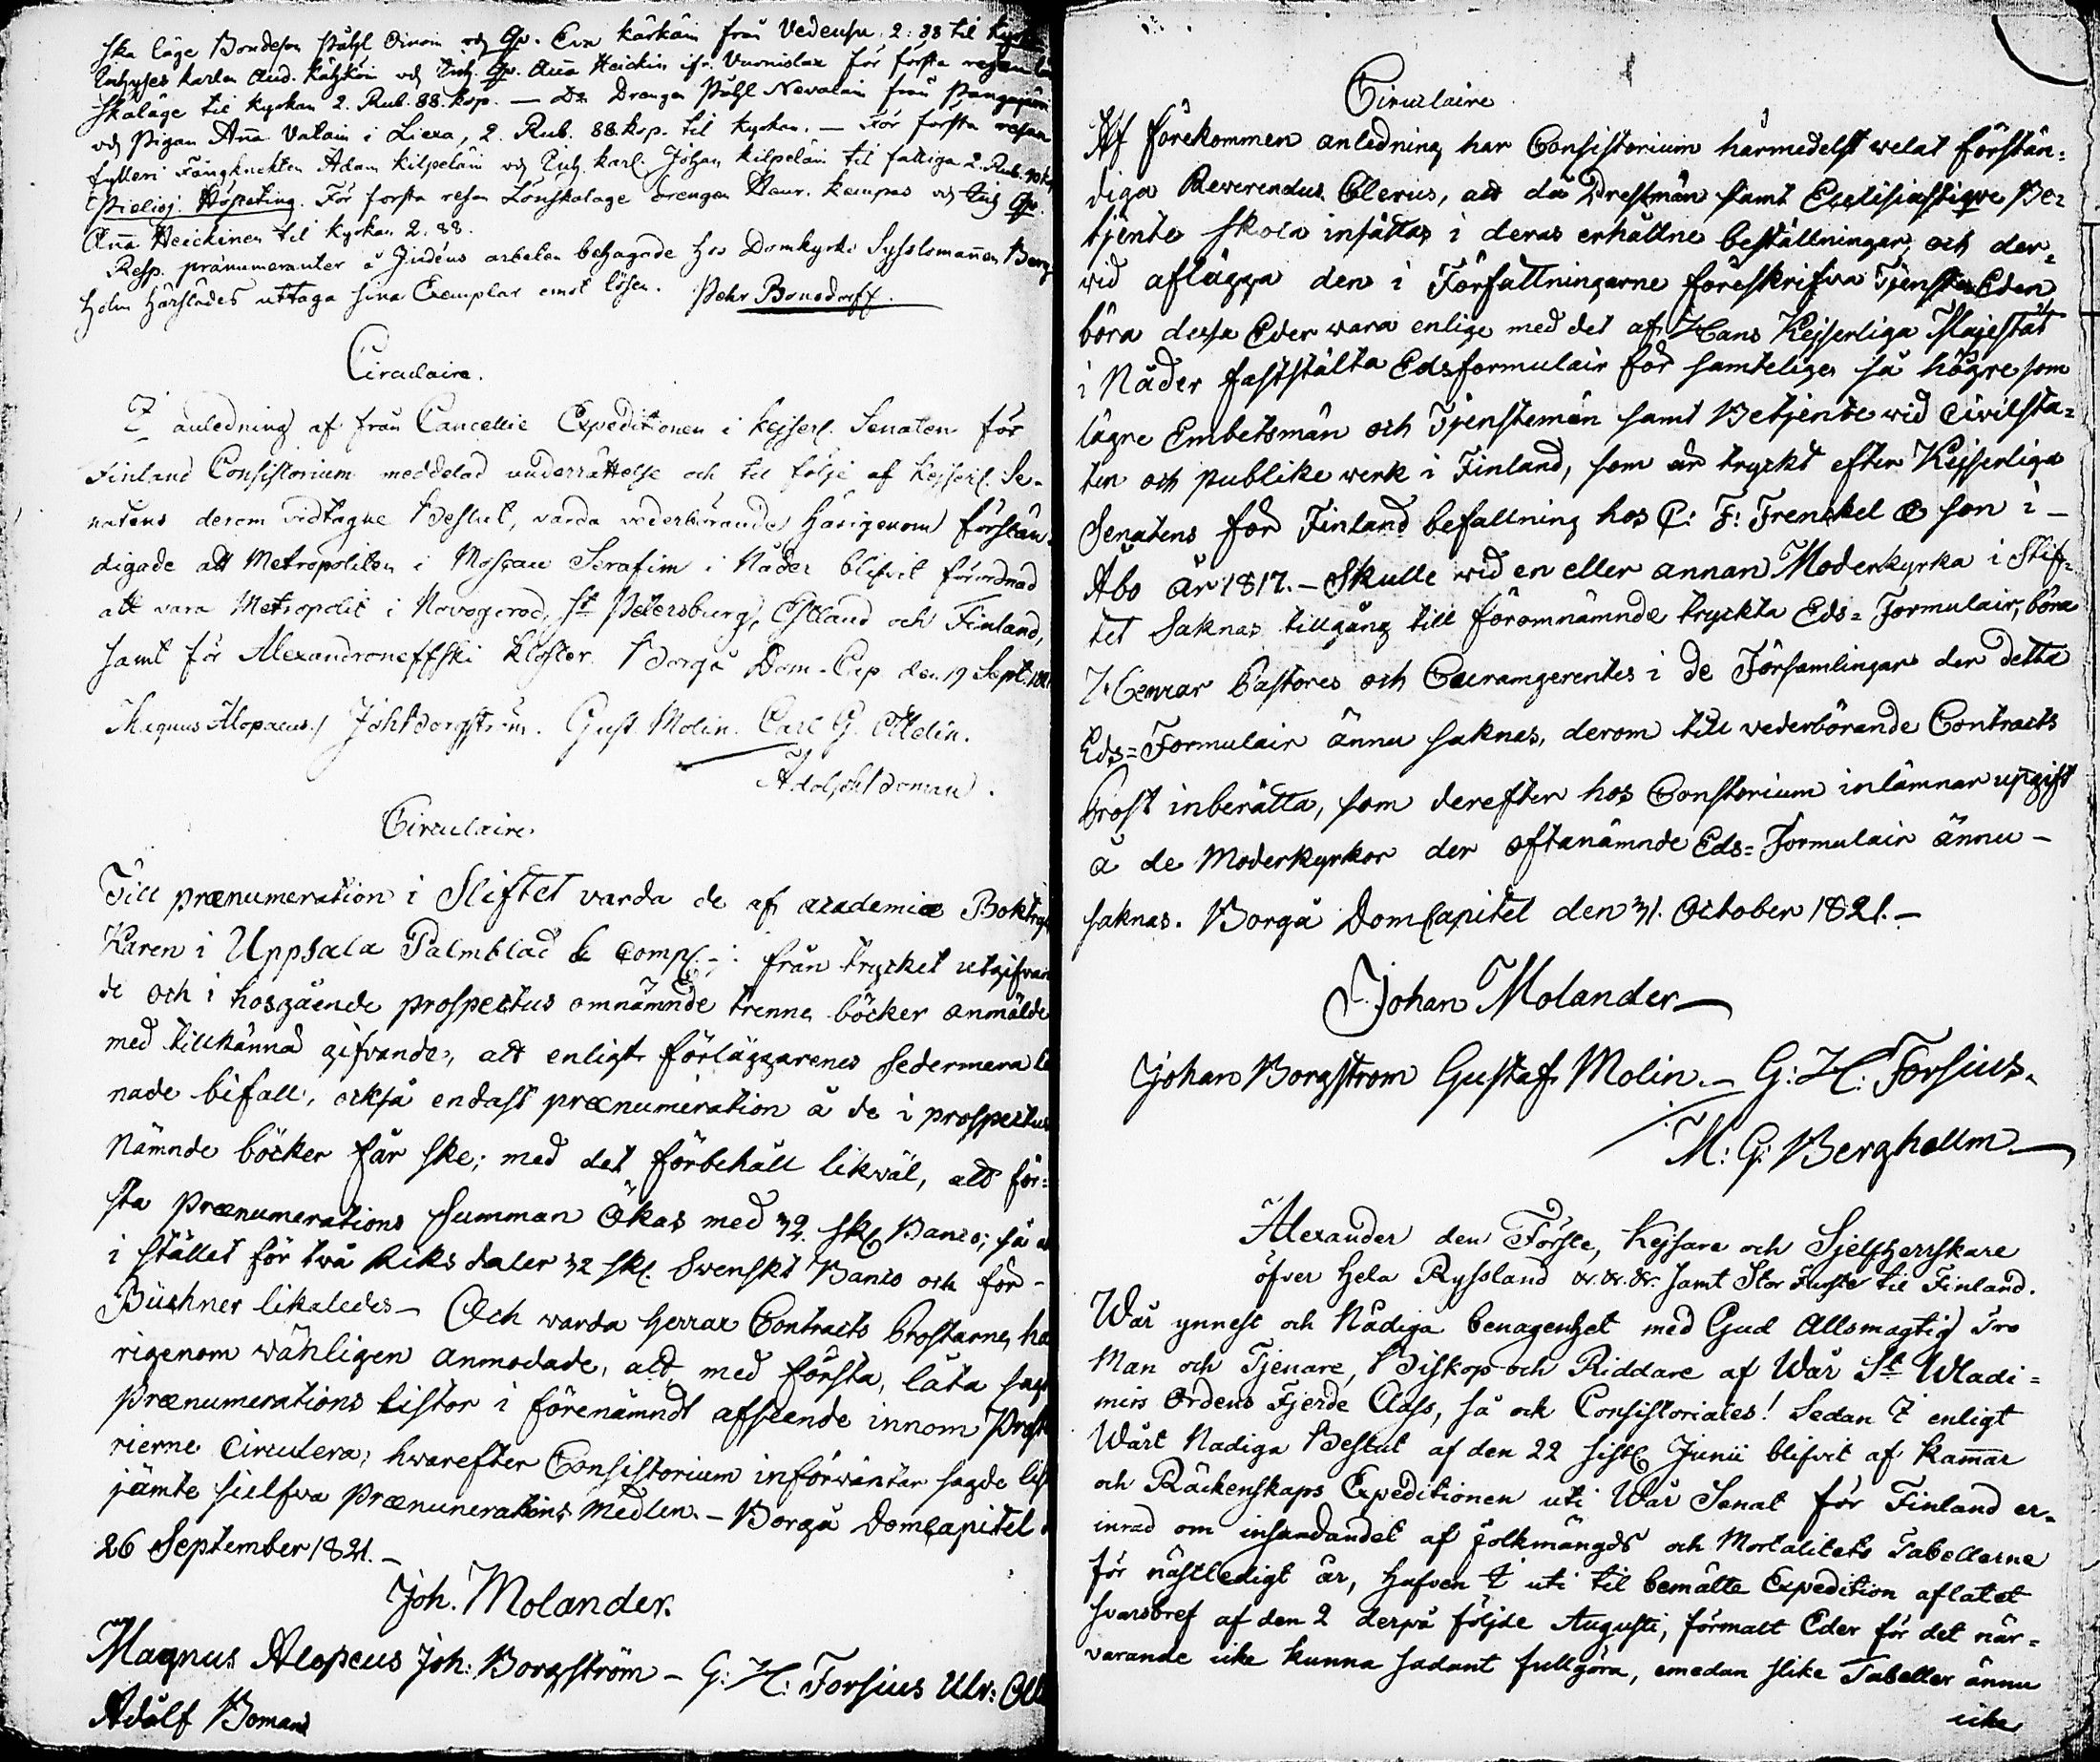 ska läge Bondeson Påhl Oinoin och Qv. Eva Kärkäin från Vedensu 2:88 til
Inhyses karlen And. Kähkön och Inh. Qv. Aña Heickin ifr. Vuonislax för första
skaläge til kyrkan 2. Rub. 88. kop. — Dr Drengen Påhl Nevalain från
och Pigan Aña Vatain i Liexa, 2. Rub. 88 kop. til kyrkan. — För första resan
fylleri Fångknekten Adam Kilpeläin och Inh. karl. Johan Kilpeläin til fattiga 2. Rub.
Pielisj. Höstting. För första resan Lönskaläge drengen Henr. Kempas och Inh Qv.
Aña Heickinen til kyrkan 2. 88.
Resp. pränumeranter å Judéns arbeten behagade hos Domkyrko Sysslomañen Berg
holm härstädes uttaga sina Exemplar emot lösen. Pehr Bonsdorff.
Circulaire.
I anledning af från Cancellie Expeditionen i Kejserl. Senaten för
Finland Consistorium meddelad underrättelse och til följe af Kejserl. Se-
natens derom vidtagne Beslut, varda vederbörande härigenom förstän-
digade att Metropoliten i Moscau Serafim i Nåder blifvit förordnad
att vara Metropolit i Novogorod, St Petersburg, Estland och Finland,
samt för Alexandroneffski Kloster. Borgå Dom-Cap den 19 Sept.
Magnus Alopaeus./ Joh Borgström. Gust. Molin. Carl G. Ottelin.
Adolph Boman.
Circulaire.
Till prænumeration i Stiftet varda de af academiæ Boktryc
karen i Uppsala Palmblad & Comp. från trycket utgifvan
de och i hosgående prospectus omnämnde trenne böcker anmälde
med tillkänna gifvande, att enligt förläggarenes sedermera
nade bifall, också endast prænumeration å de i prospectus
Nämnde böcker får ske; med det förbehåll likwäl, att för-
sta prænumerations summan ökas med 32. sk. Banco; så
i stället för två Riksdaler 32 sk. Svenskt Banco och för -
Büchner likaledes — Och varda Herrar Contracts Prostarne, hä
rigenom wänligen anmodade, att med första, låta
Prænumerations listor i förenämndt afseende innom Prost
rierne circulera; hwarefter Consistorium införwäntar sagde
jämte sielfva prænumerations medlen. — Borgå DomCapitel
26 September 1821. —
Joh. Molander.
Magnus Alopeus Joh: Borgström — G: H: Forsius Ulr:
Adolf Boman
Circulaire
Af förekommen anledning har Consistorium härmedelst welat förstän=
diga Reverendus Clerus, att då Prestmän samt Ecclisiastique Be=
tjente skola insättas i deras erhållne beställningar, och der=
wid aflägga den i Författningarne föreskrifva Tjenste Eden
böra dessa Eder wara enlige med det af Hans Kejserliga Majestät
i Nåder faststälta Edsformulair för samtelige så högre som
lägre Embetsmän och Tjenstemän samt Betjente wid civilsta=
ten och publike werk i Finland, som är tryckt efter Kejserliga
Senatens för Finland befallning hos C: F: Frenckel & son i —
Åbo år 1817. — Skulle wid en eller annan Moderkyrka i Stif=
tet saknas tillgång till föromnämnde tryckta Eds=Formulair, böra
Herrar Pastores och Curamgerentes i de Församlingar der detta
Eds=Formulair ännu saknas, derom till vederbörande Contracts
Prost inberätta, som derefter hos Constorium inlämnar upgift
å de Moderkyrkor der oftanämnde Eds=Formulair ännu —
saknas. Borgå DomCapitel den 31. October 1821. —
Johan Molander
Johan Borgstrom Gustaf Molin. — G: H: Forsius.
M: G: Berghellm
Alexander den Förste, Kejsare och Sjelfherrskare
öfver hela Ryssland &c. &c. &c. samt Stor Furste til Finland.
Wår ynnest och Nådiga benagenhet med Gud Allsmagtig Tro
Man och Tjenare, Biskop och Riddare af Wår St Wladi=
mirs Ordens Fjerde Class, så ock Consistoriales! Sedan I enligt
Wårt Nadiga Beslut af den 22 sistl. Junii blifvit af Kam̄ar
och Räckenskaps Expeditionen uti Wår Senat för Finland er-
inrad om insandandet af folkmängds och Mortalitets Tabellerne
för nästledigt år, hafven I uti til bemälte Expedition aflatet
svarsbref af den 2 derpå följde Augusti, förmalt Eder för det när=
varande icke kunna sådant fullgöra, emedan slike Tabeller ännu
icke